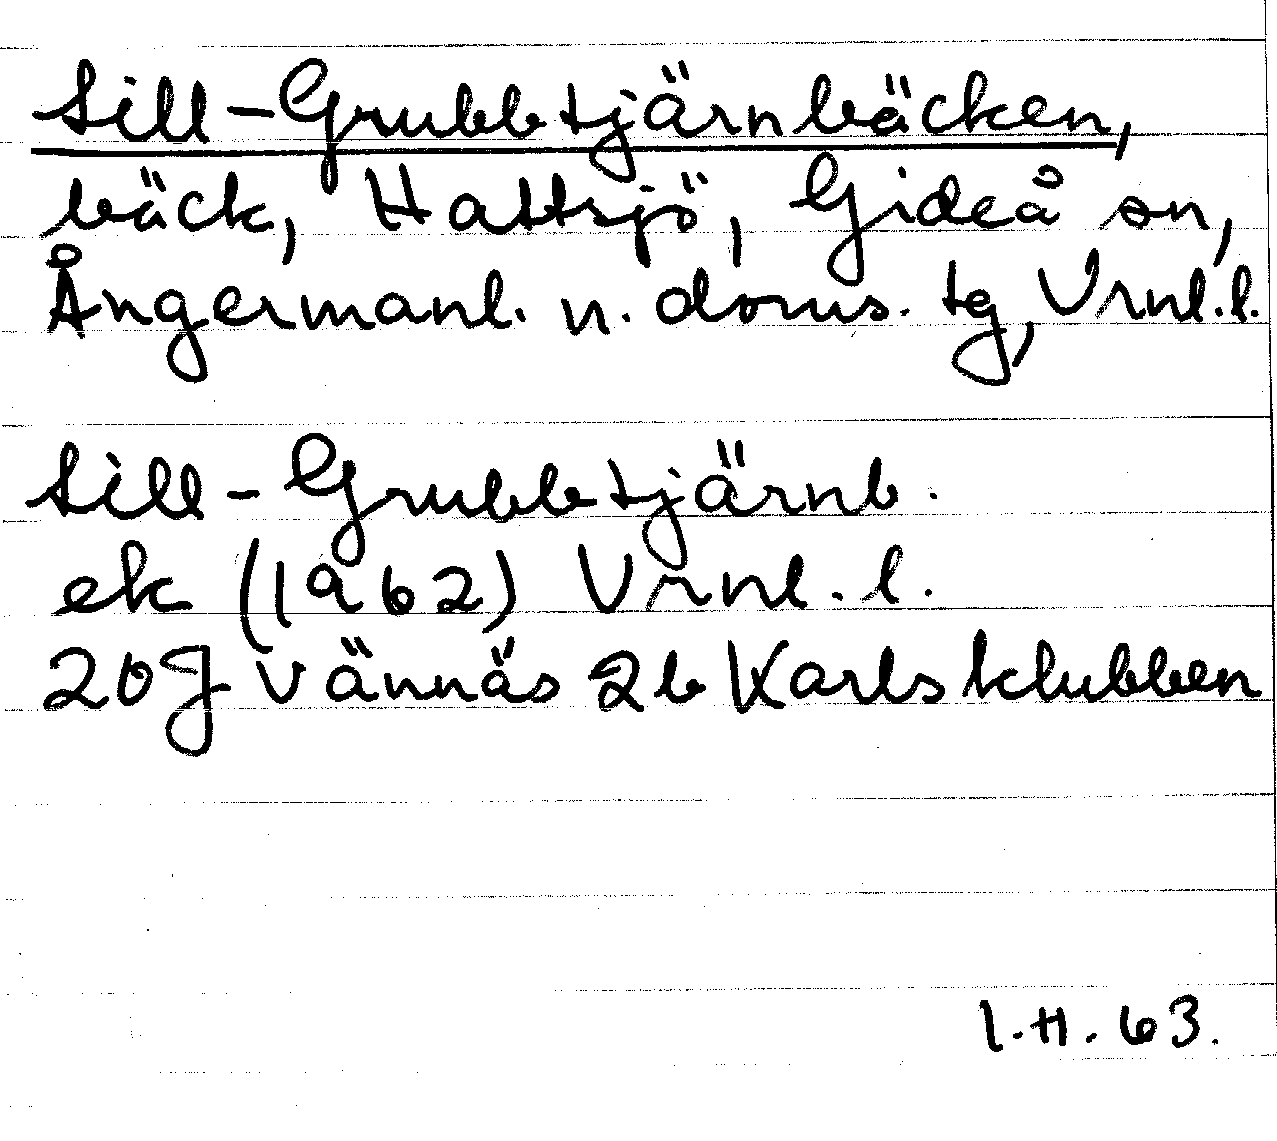 Sill-Grubbtjärnbäcken,
bäck, Hattsjö, Gideå sn,
Ångermanl. n. doms. tg, Vrnl. l.
Sill-Grubbtjärnb.
ek (1962) Vrnl. l.
20J Vännäs 2b Karlsklubben
I.H. 63.